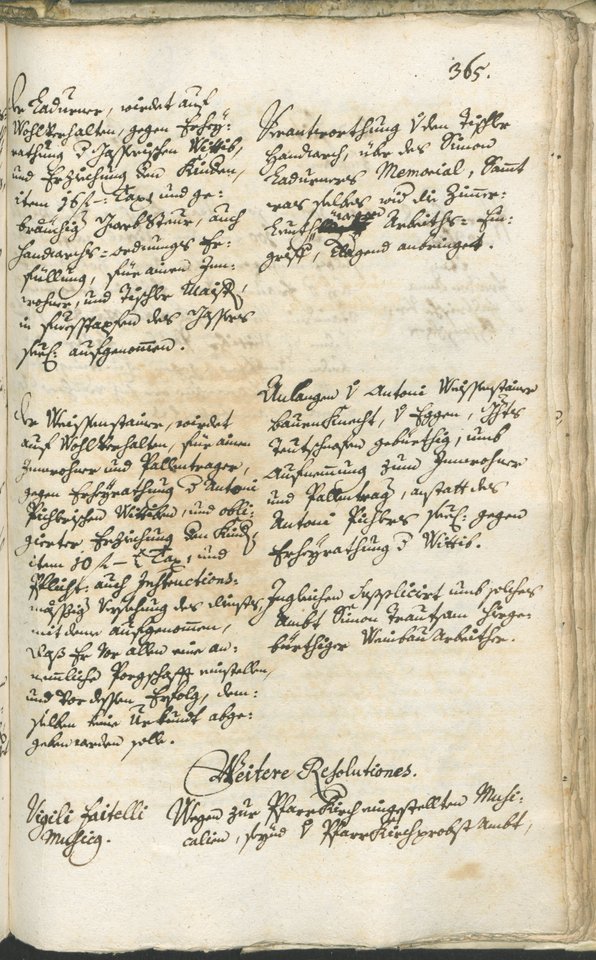 365.
der Ladurner, wirdet auf
Wohlverhalten, gegen Erhey:
rathung d Jasserischen Wittib,
und Erziehung dem Kindern,
item 36 f – Tax und ge:
bräuchig Harbsteur, auch
Handwerchs-ordnungs Er:
füllung, für ainen Inn:
wohner, und Tischler Maistr,
in fuesstapfen des Jassers
seel: aufgenommen.
Verantworthung von dem Tischler
Handwerch, über des Simon
Ladurners Memorial, sambt
was selbes wider die Zimmer:
Leuth wegen Arbeiths-Ein:
griff, klagend anbringet.
der Weissenstainer, wirdet
auf Wohlverhalten, für ainen
Innwohner und Pallentrager,
gegen Erheyrathung d Antoni
Pichlerischen Wittiben, und obli:
gierter Erziehung dem Kindern
item 10 f – x Tax, und
Pflicht: auch Instructions:
mässig Versehung des diensts,
mit deme aufgenommen,
dass Er vor allem eine an:
nemliche Porgschafft einstellen,
und vor dessen Erfolg, dem:
selben keine Urkundt abge:
geben werden solle.
Anlangen von Antoni Weissenstainer
baurenknecht, von Eggen, Ghts
Teutschnofen gebürthig, umb
Aufnemmung zum Innwohner
und Pallentrag, anstatt des
Antoni Pichlers seel: gegen
Erheyrathung d Wittib.
Ingleichen Supplicirt umb solches
Ambt Simon Trautsam hiege:
bürthiger Weinbau Arbeither.
Weitere Resolutiones.
Vigili Faitelli
Musicg.
Wegen zur Pfarrkirch eingestellten Musi:
calien, seynd von Pfarrkirchprobst Ambt,